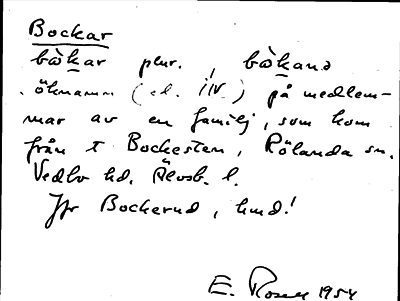 Bockar
båkar plur., båkana
öknamn (el. ) på medlem-
mar av en familj, som kom
från t Bockesten, Rölanda sn.
Vedbo hd. Älvsb. l.
Jfr Bockerud, hmd!
E. Rosell 1954